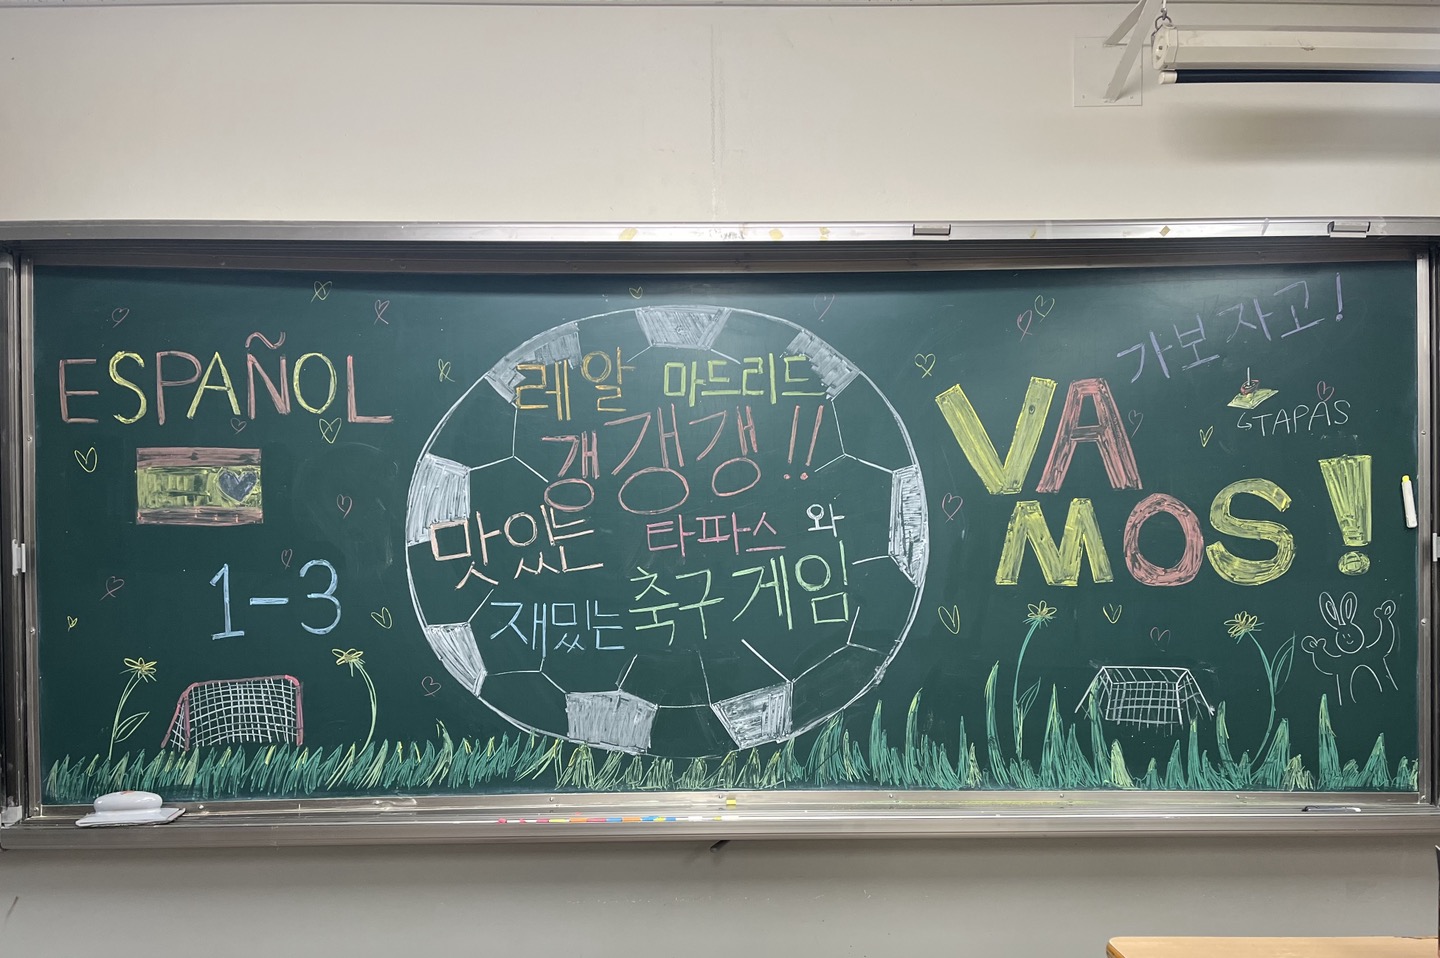 ESPAÑOL
1-3
레알 마드리드
갱갱갱!!
맛있는 타파스 와
재밌는 축구 게임
가보자고!
VA
MOS!
TAPAS